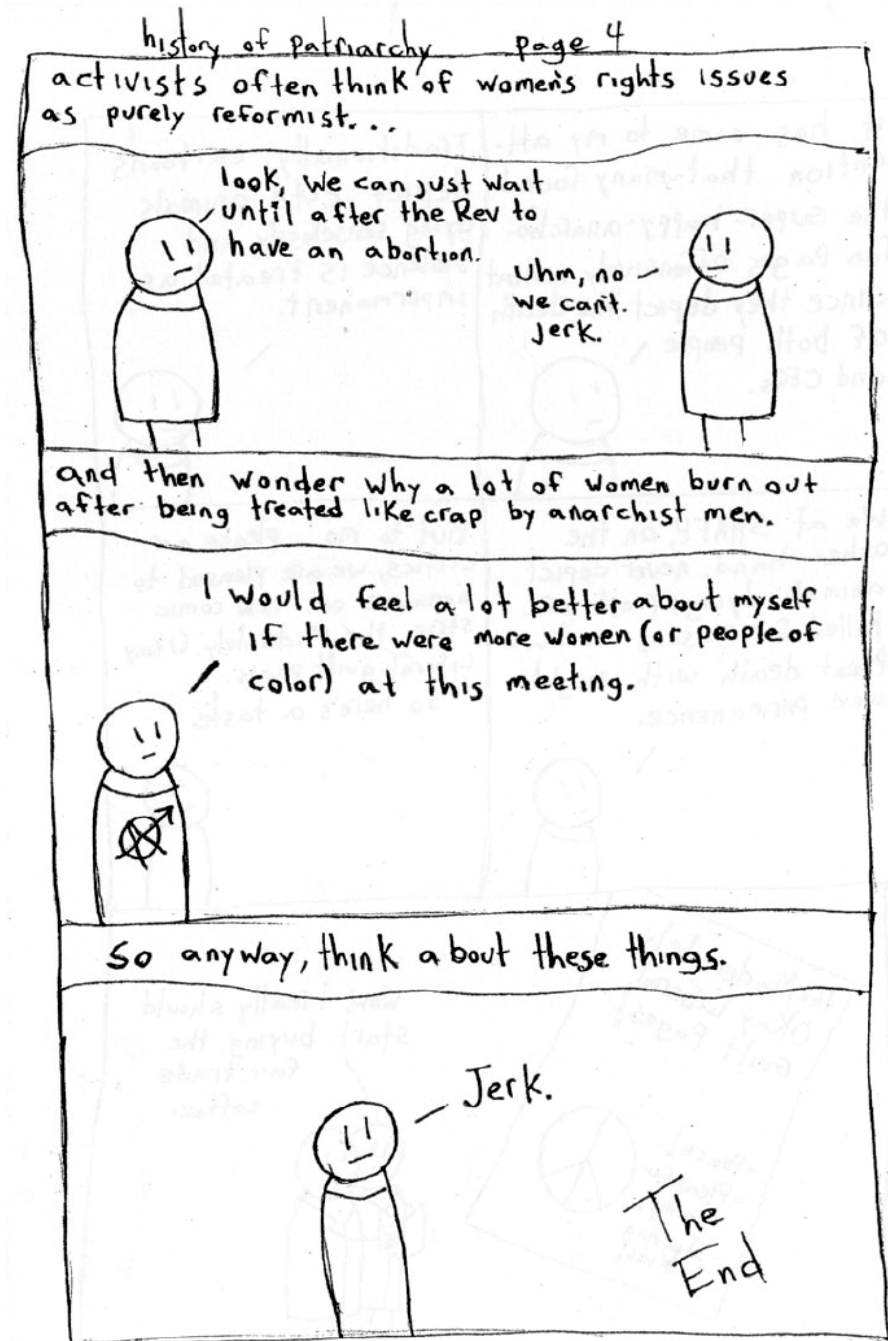 history of patriarchy page 4
activists often think of women's rights issues
as purely reformist...
look, we can just wait
until after the Rev to
have an abortion.
Uhm, no
we can't.
Jerk.
and then wonder why a lot of women burn out
after being treated like crap by anarchist men.
I would feel a lot better about myself
if there were more women (or people of
color) at this meeting.
So anyway, think about these things.
Jerk.
The
End